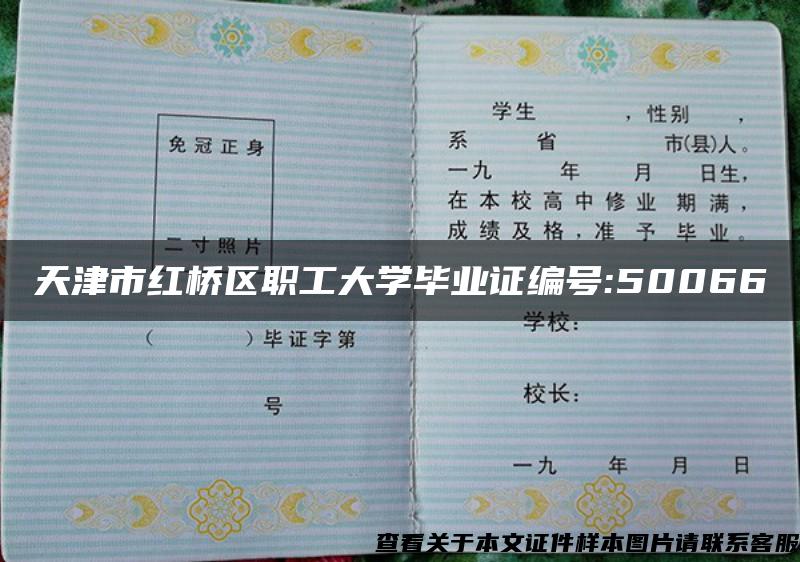 免冠正身
二寸照片
（ ）毕证字第
号
学生 ，性别 ，
系 省 市(县)人。
一九 年 月 日生，
在本校高中修业 期满，
成绩及格，准予毕业。
天津市红桥区职工大学毕业证编号:50066
学校：
校长：
一九 年 月 日
查看关于本文证件样本图片请联系客服